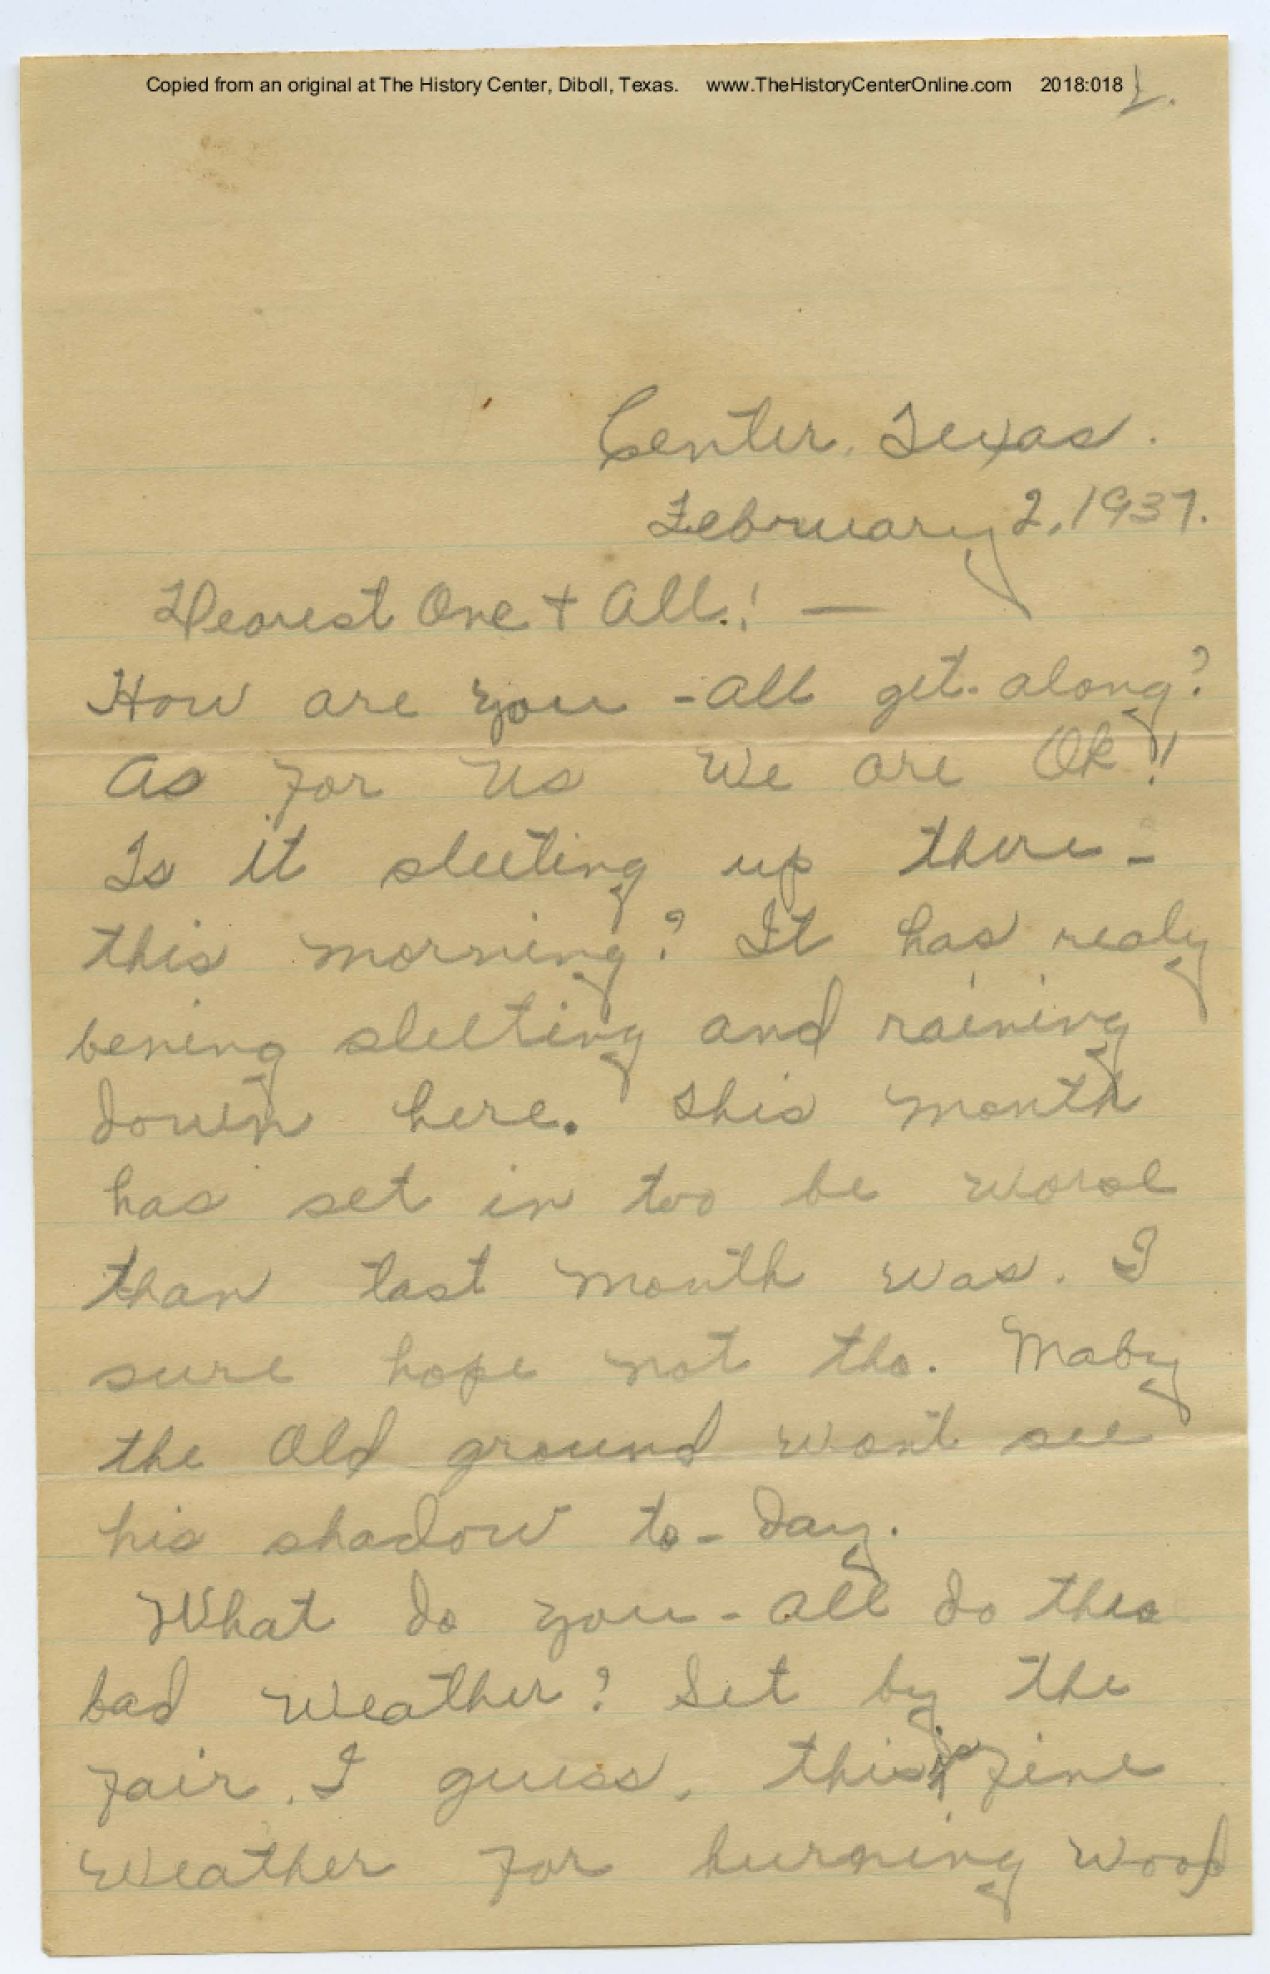 Copied from an original at The History Center, Diboll, Texas. www.TheHistoryCenterOnline.com 2018:018
1.
Center, Texas.
February 2, 1937.
Dearest One + All.! —
How are you -all get. along?
As for us we are Ok!!
Is it sleeting up there -
this morning? It has realy
bening sleeting and raining
down here. This month
has set in too be worse
than last month was. I
sure hope not tho. Maby
the Old ground won't see
his shadow to-day.
What do you-all do this
bad weather? Set by the
fair. I guess. this fine
weather for burning wood